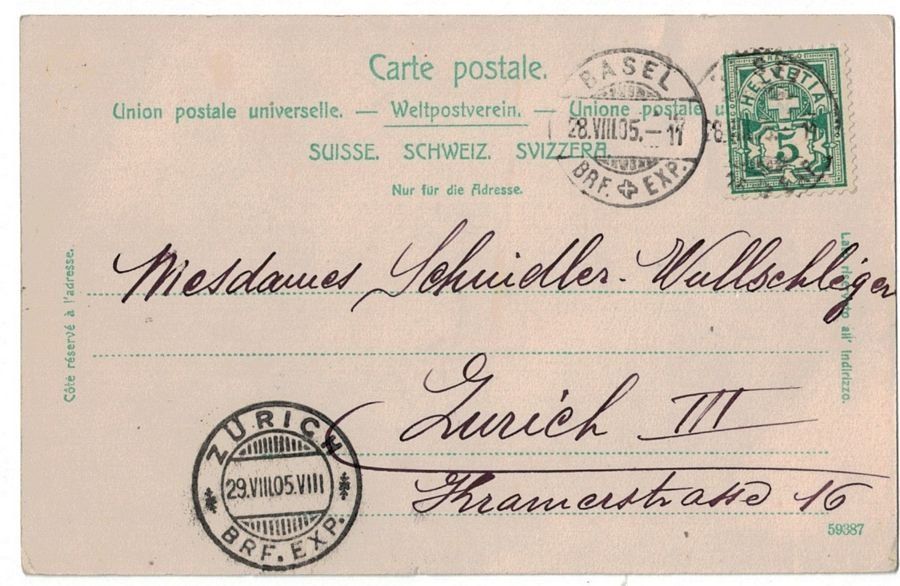 Carte postale.
Union postale universelle. — Weltpostverein. — Unione postale u
SUISSE. SCHWEIZ. SVIZZERA
Nur für die Adresse.
BASEL
28.VIII.05.—11
BRF. EXP.
HELVETIA
5
Côte réservé à l'adresse.
Lato riservato all' Indirizzo.
Mesdames Schnidler-Wullschléger
Zurich III
Kramerstrasse 16
ZÜRICH
29.VIII.05.VIII
BRF. EXP.
59387